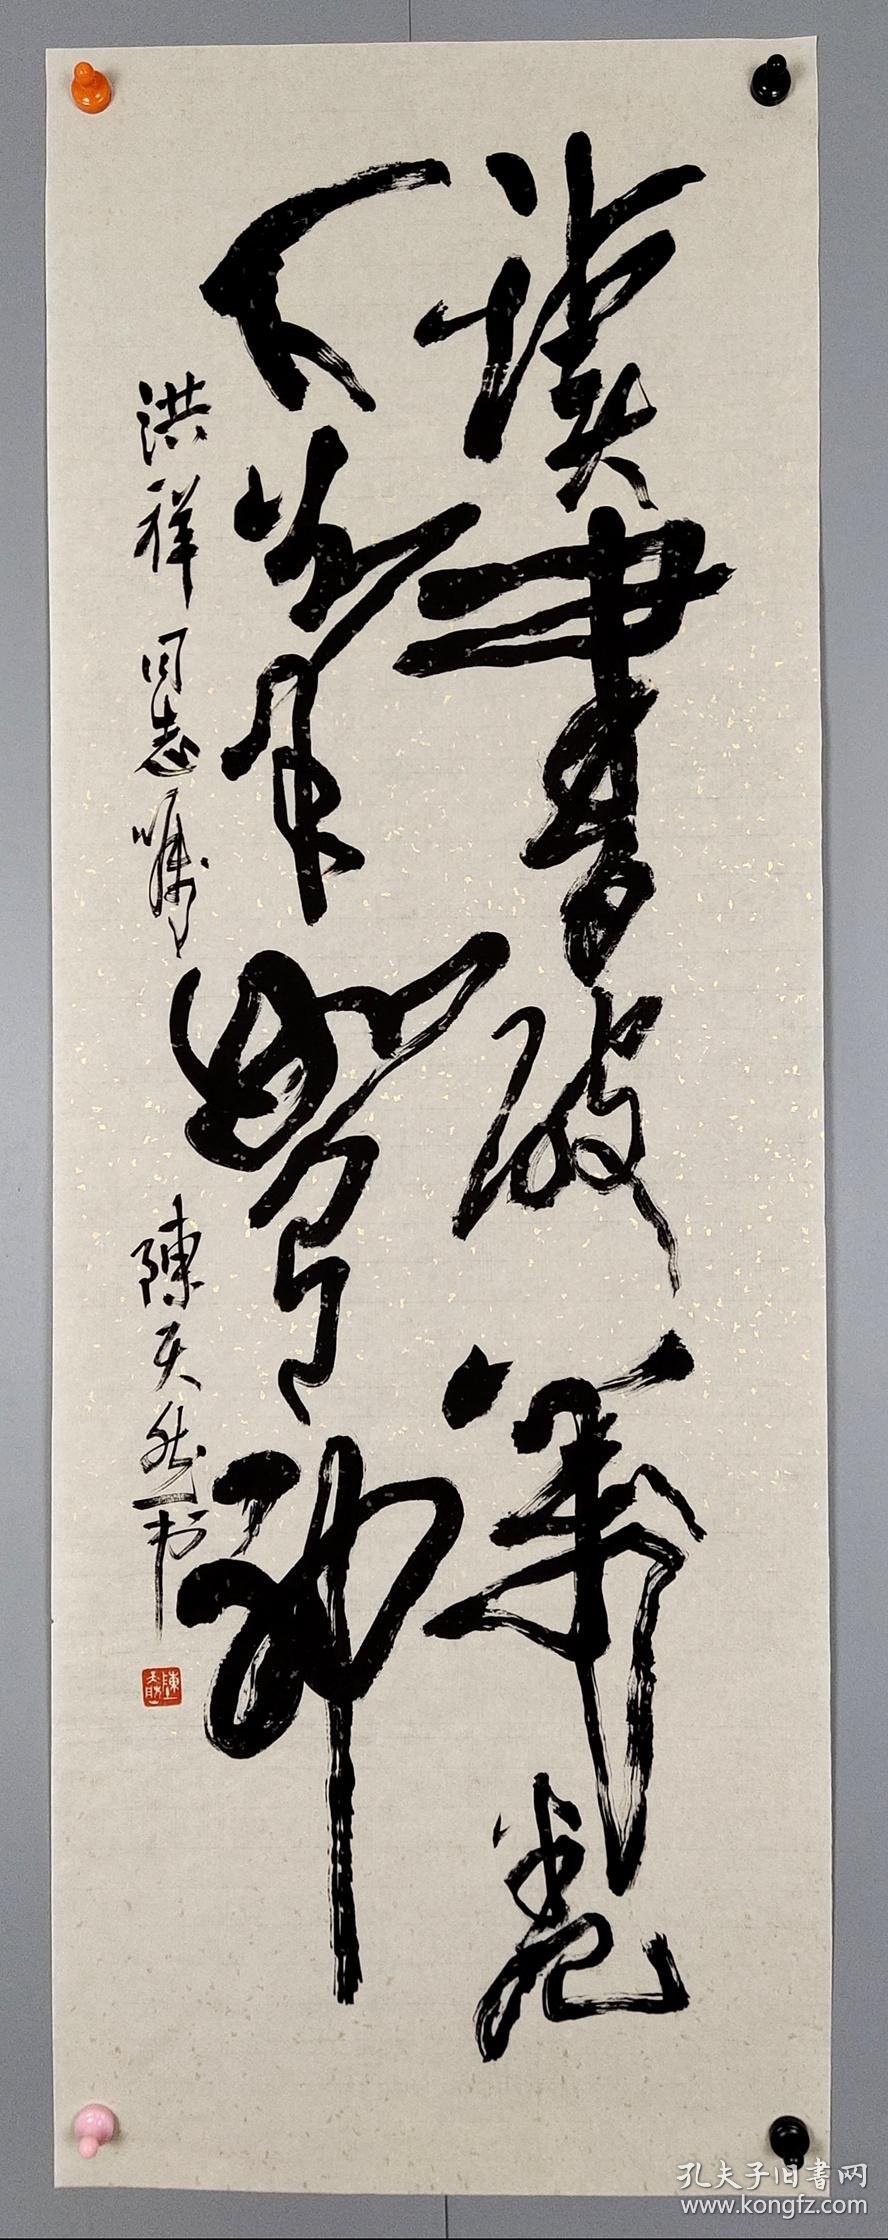 讀書破萬卷
下筆如有神
洪祥同志嘱
陳天然书
陳天然
孔夫子旧書网
www.kongfz.com